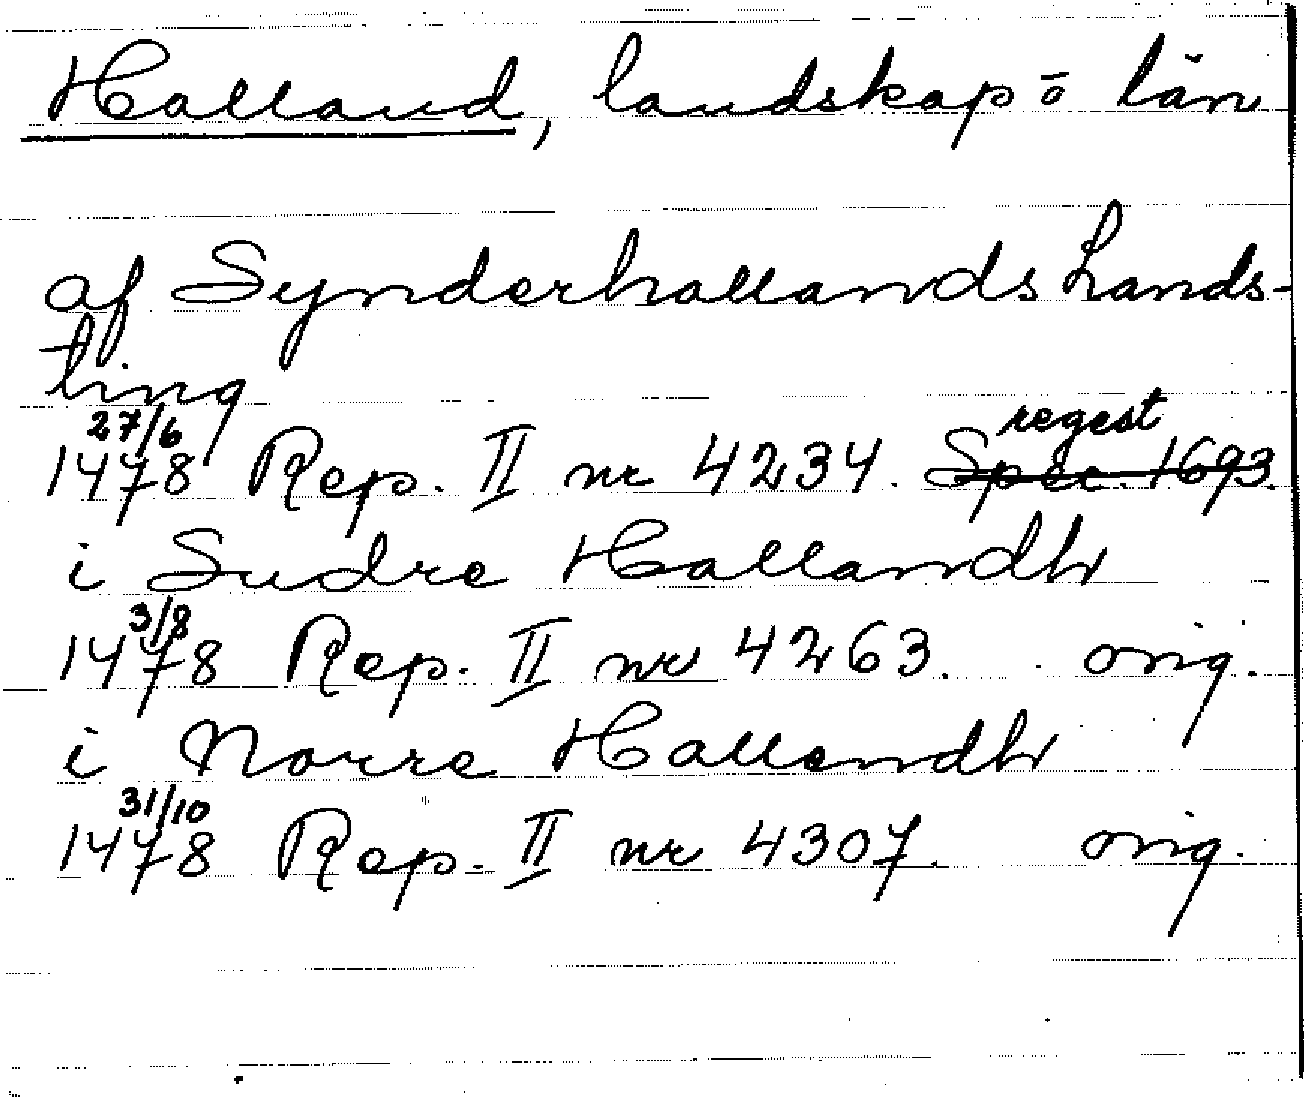 Halland, landskap o län
af Synderhallands Lands-
ting
27/6 regest
1478 Rep. II nr 4234. Spec. 1693
i Sudre Hallandh
3/8
1478 Rep. II nr 4263. orig.
i Norre Hallendh
31/10
1478 Rep. II nr 4307. orig.